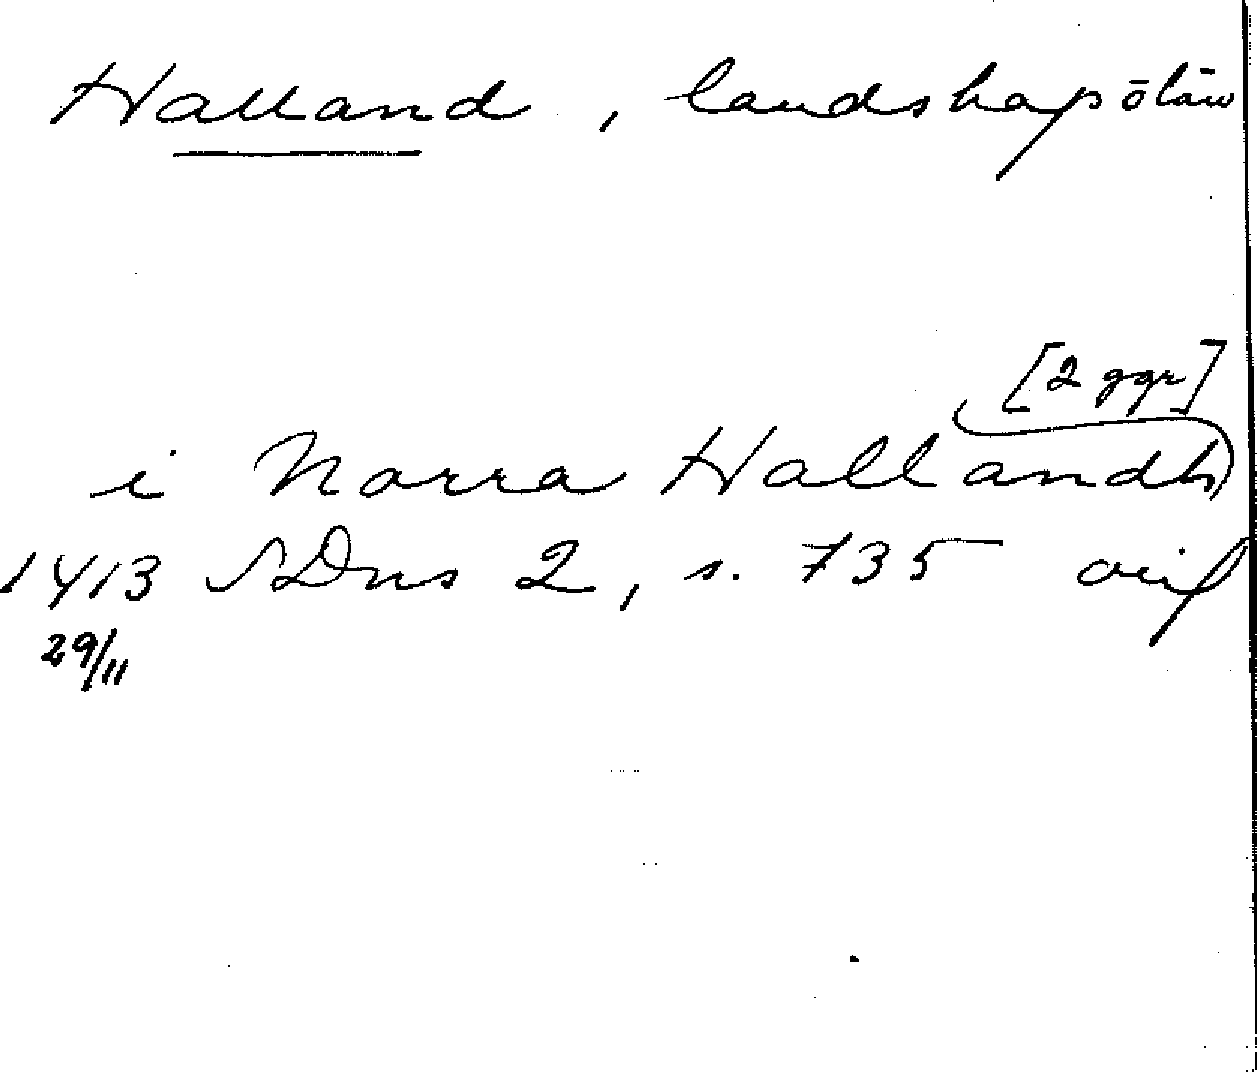 Halland, landskap
[2 ggr]
i Norra Hallandh
1413 SDns 2, s. 735 avskr
29/11